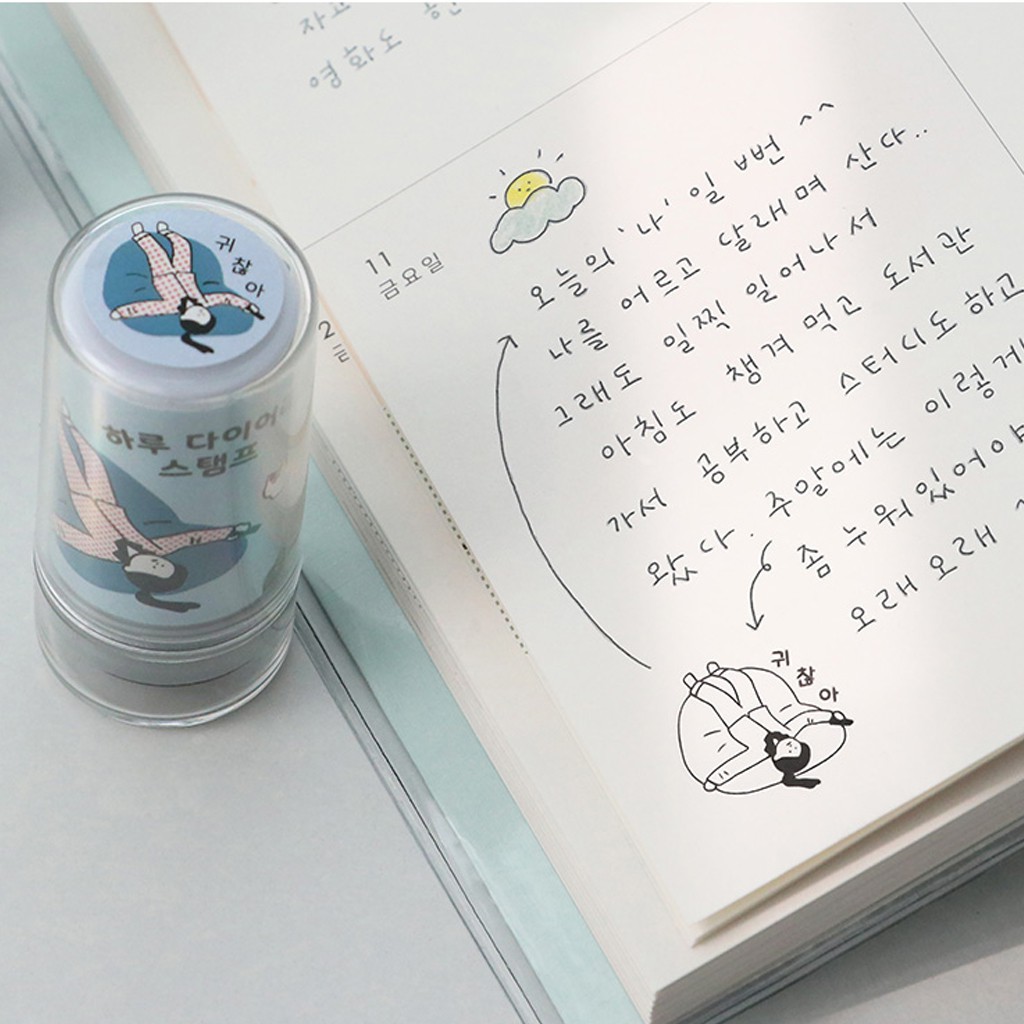 영화도
11
금요일
오늘의 '나' 일 ㅂ번 ^^
나를 어르고 달래며 산다..
그래도 일찍 일어나서
아침도 챙겨 먹고 도서관
가서 공부하고 스터디도 하고
왔다. 주말에는 이렇게
좀 누워있어야
오래 오래
귀찮아
귀찮아
하루 다이어리
스탬프
2